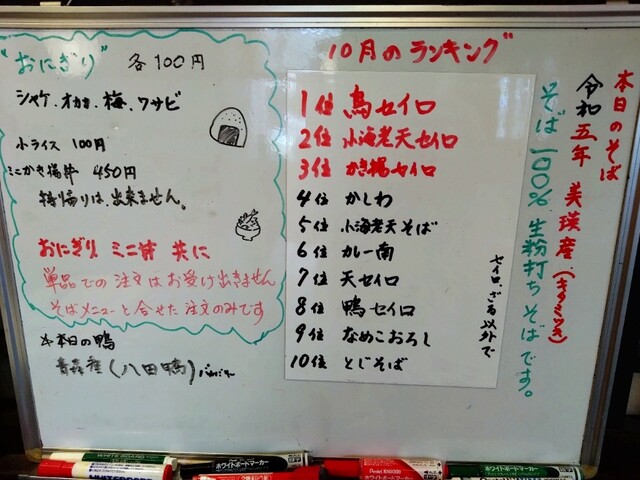 "おにぎり" 各100円
シャケ、オカカ、梅、ワサビ
小ライス 100円
ミニかき揚丼 450円
持ち帰りは、出来ません。
おにぎり ミニ丼 共に
単品での注文はお受け出きません
そばメニューと合せた注文のみです
本日の鴨
青森産(八田鴨)
10月のランキング
1位 鳥セイロ
2位 小海老天セイロ
3位 かき揚セイロ
4位 かしわ
5位 小海老天そば
6位 カレー南
7位 天セイロ
8位 鴨セイロ
9位 なめこおろし
10位 とじそば
セイロ、ざる以外で
本日のそば
令和五年 美瑛産(キタミツキ)
そば一〇〇% 生粉打ちそばです。
WHITE BOARD MARKER
ホワイトボードマーカー
ホワイトボードマーカー
ホワイトボードマーカー